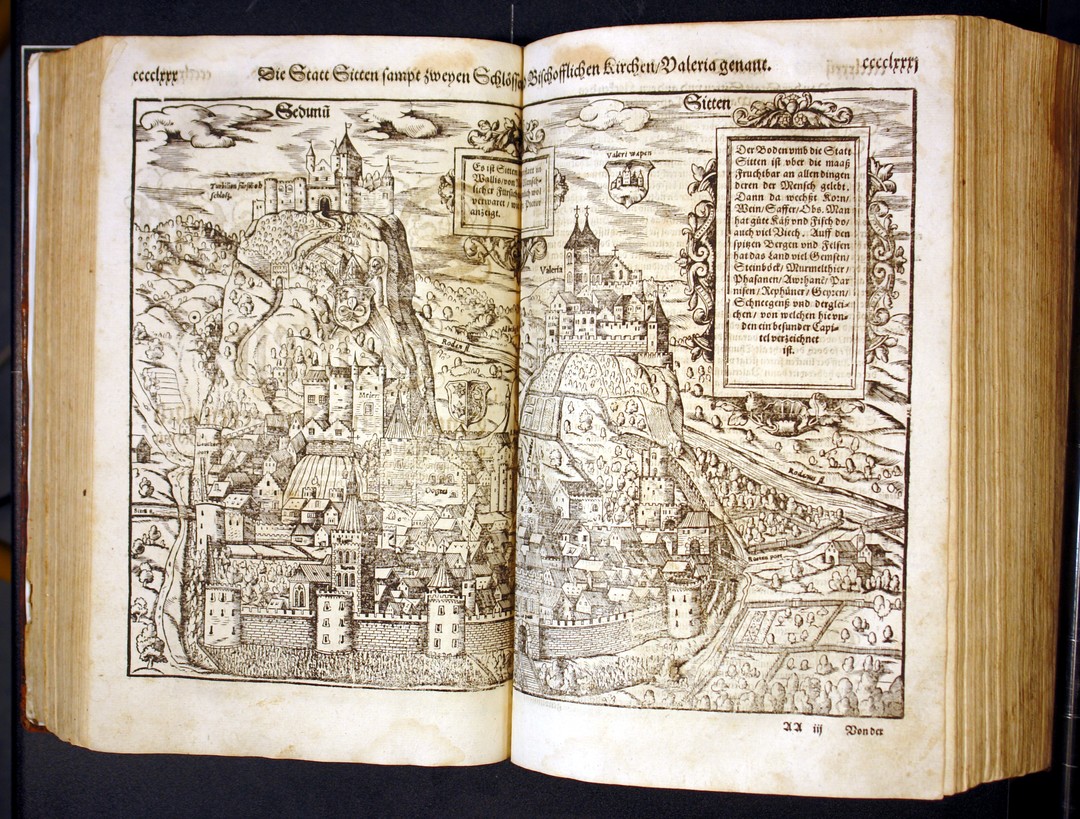 cccclxxx
Die Statt Sitten sampt zweyen Schlössen Bischofflichen Kirchen/Valeria genant.
cccclxxxj
Sedunū
Sitten
Es ist Sitten
Wallis/von
licher Fürsich
verwaret/
anzeigt.
Valeri wapen
Valeria
Der Boden vmb die Statt
Sitten ist vber die maaß
Fruchtbar an allen dingen
deren der Mensch gelebt.
Dann da wechßt Korn/
Wein/Saffer/Obs. Man
hat gůte Käß vnd Fisch do/
auch viel Viech. Auff den
spitzen Bergen vnd Felsen
hat das Land viel Gemsen/
Steinböck/Murmelthier/
Phasanen/Awrhanē/Par
nisen/Rephüner/Geyren/
Schneegenß vnd derglei-
chen/von welchen hie vn-
den ein besunder Capi-
tel verzeichnet
ist.
Rodan
Meier
Rodanus fl.
AA iij Von der